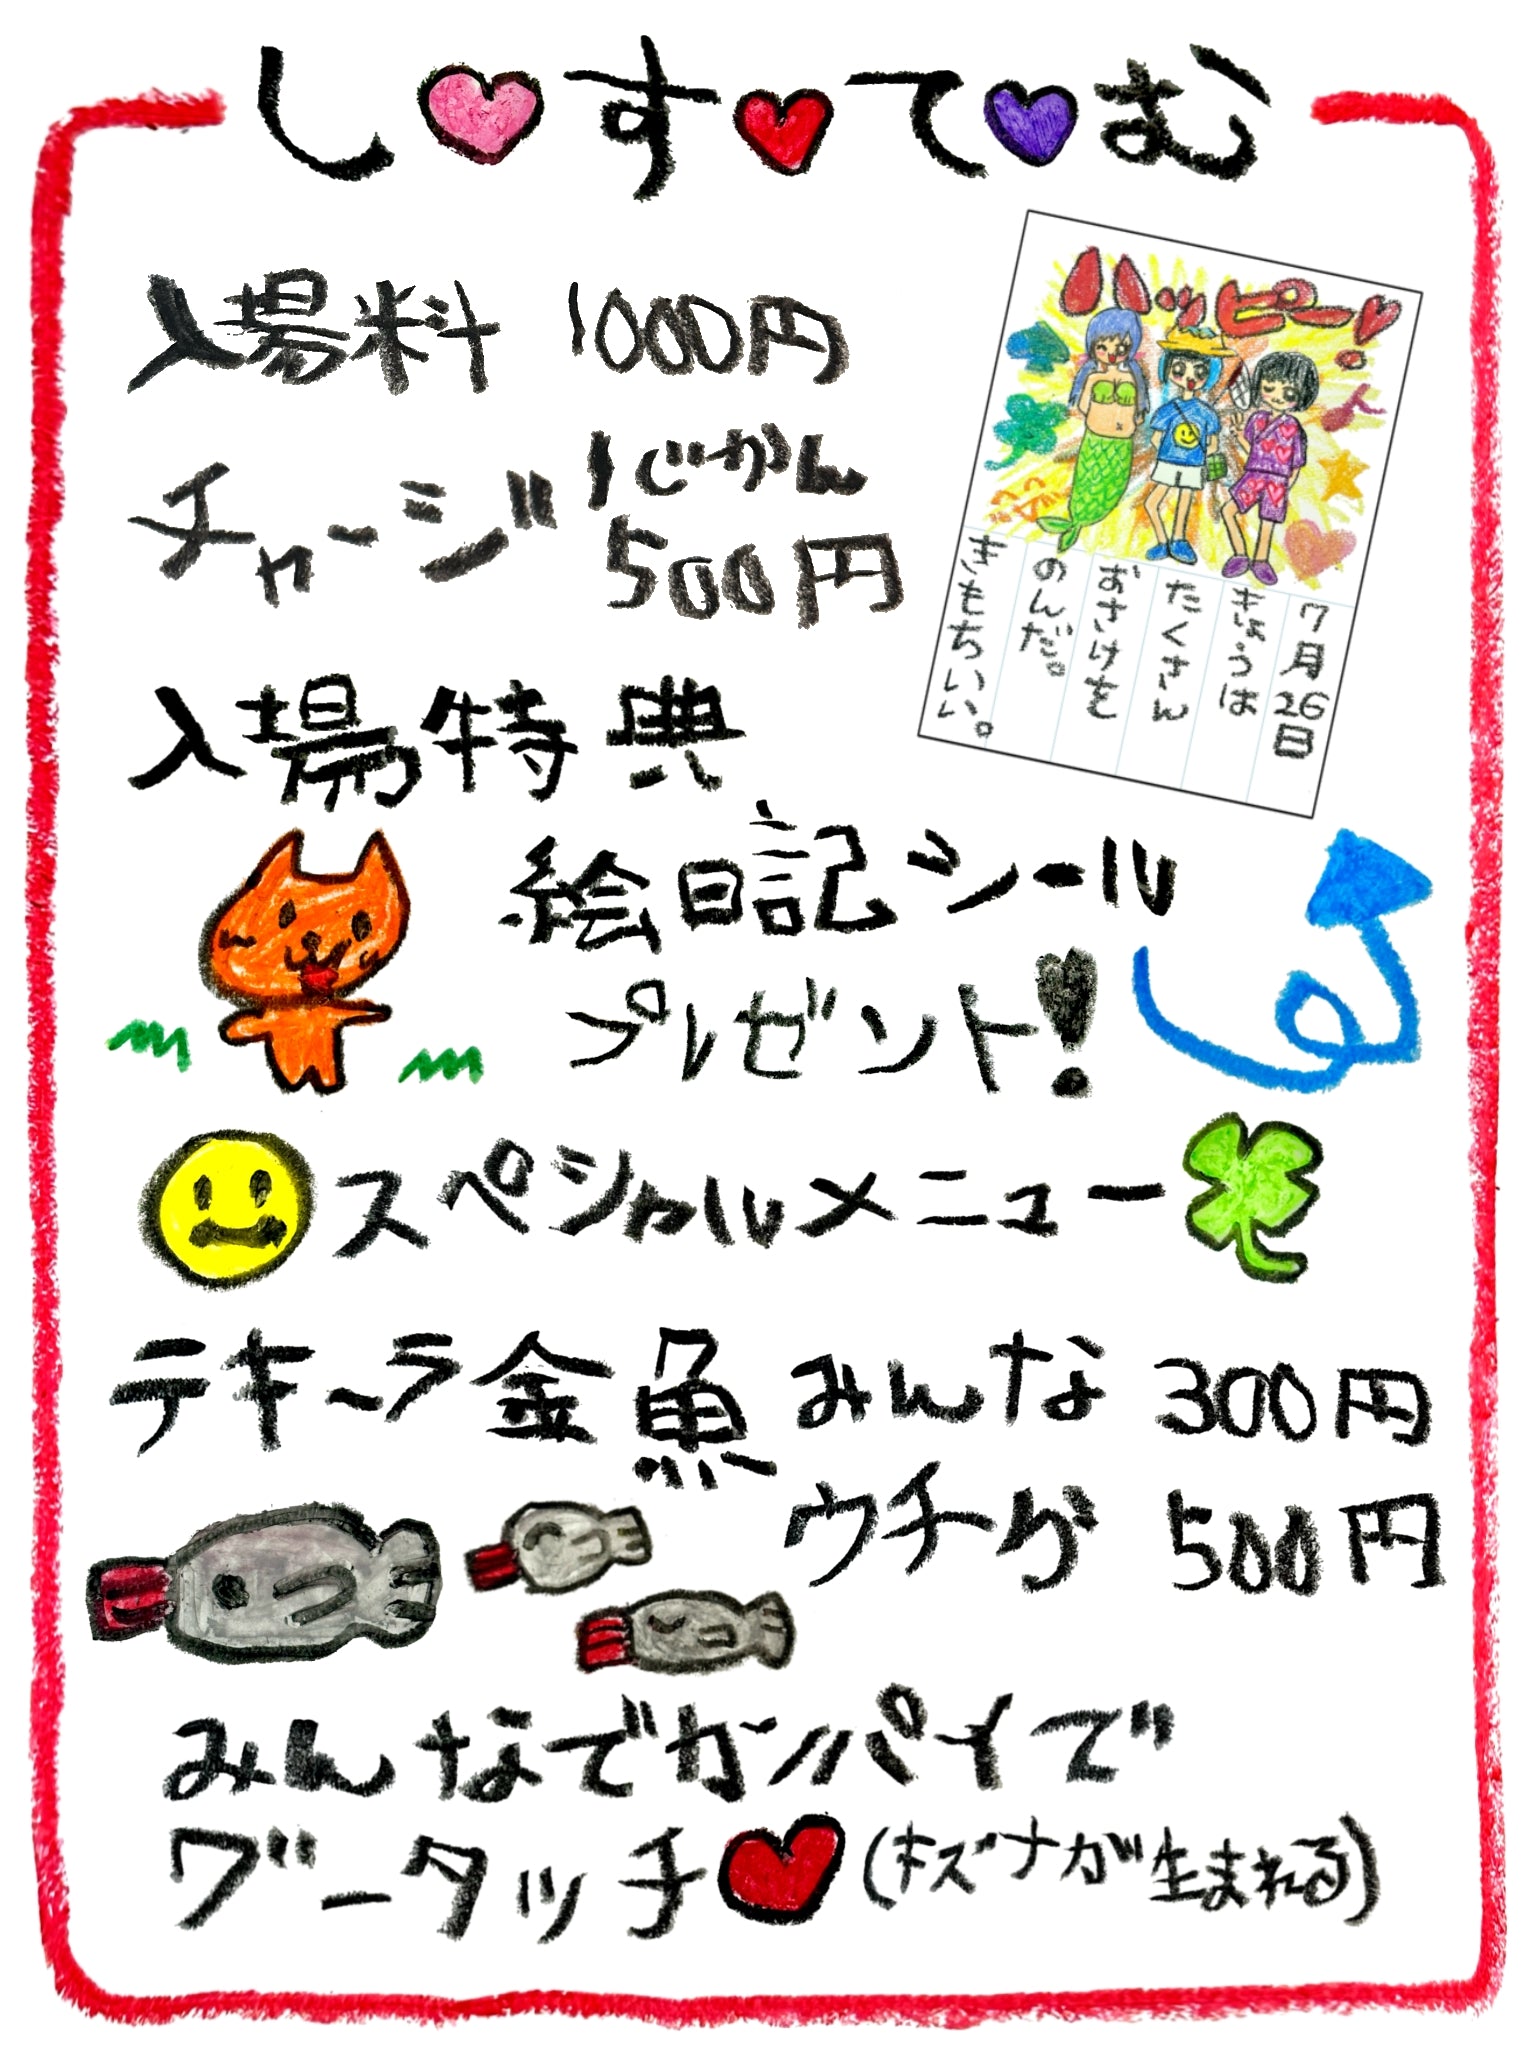 し♥す♥て♥む
入場料 1000円
チャージ 1じかん
500円
入場特典
絵日記シール
プレゼント!
ハッピー
7月26日
きょうは
たくさん
おさけを
のんだ。
きもちいい。
スペシャルメニュー
テキーラ金魚 みんな 300円
ウチら 500円
みんなでカンパイで
グータッチ♥(キズナが生まれる)